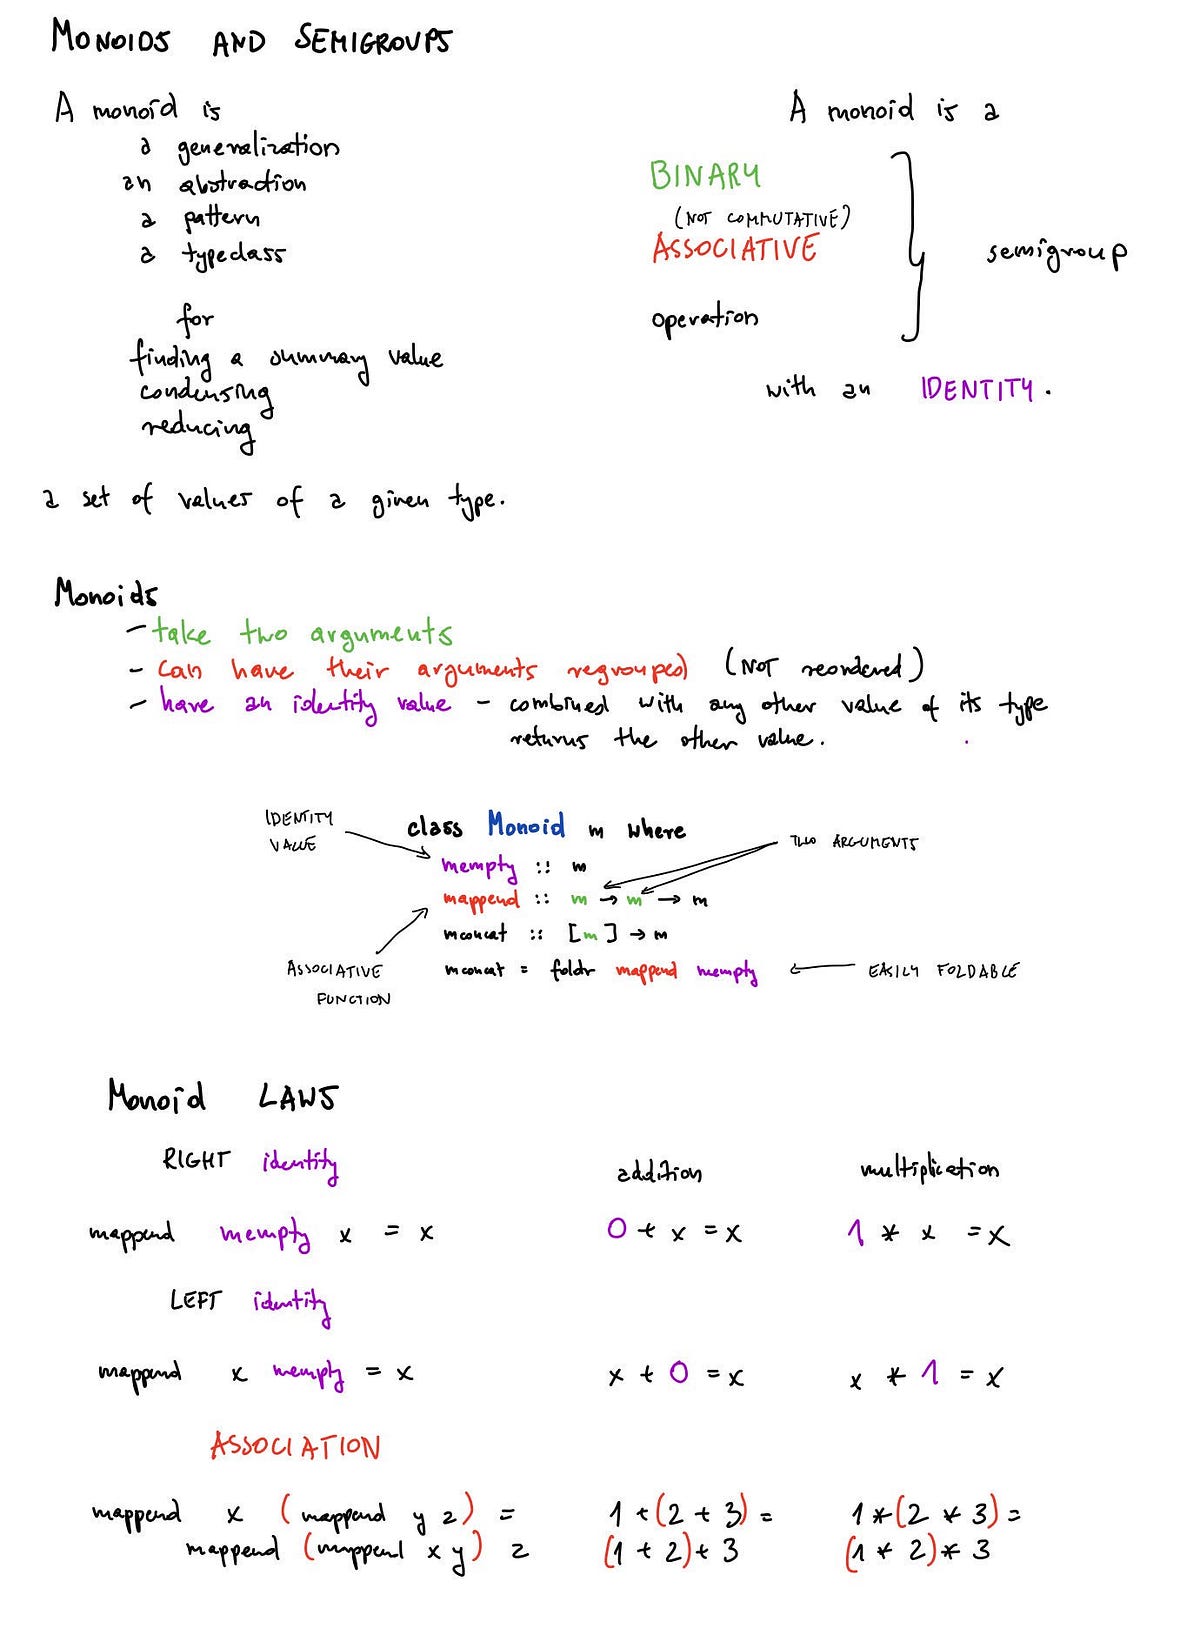 MONOIDS AND SEMIGROUPS
A monoid is
a generalization
an abstraction
a pattern
a typeclass
for
finding a summary value
condensing
reducing
a set of values of a given type.
A monoid is a
BINARY
(NOT COMMUTATIVE)
ASSOCIATIVE
operation
semigroup
with an IDENTITY.
Monoids
- take two arguments
- can have their arguments regrouped (NOT reordered)
- have an identity value - combined with any other value of its type
returns the other value.
IDENTITY
VALUE
class Monoid m where
mempty :: m
TWO ARGUMENTS
mappend :: m → m → m
mconcat :: [m] → m
ASSOCIATIVE
FUNCTION
mconcat = foldr mappend mempty
EASILY FOLDABLE
Monoid LAWS
RIGHT identity
addition
multiplication
mappend mempty x = x
0 + x = x
1 * x = x
LEFT identity
mappend x mempty = x
x + 0 = x
x * 1 = x
ASSOCIATION
mappend x (mappend y z) =
mappend (mappend x y) z
1 + (2 + 3) =
(1 + 2) + 3
1 * (2 * 3) =
(1 * 2) * 3